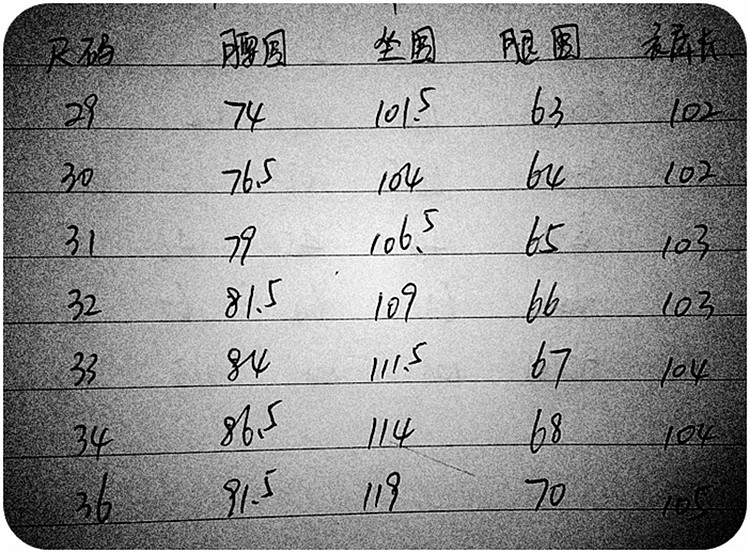 尺码 腰围 坐围 腿围 裤长
29 74 101.5 63 102
30 76.5 104 64 102
31 79 106.5 65 103
32 81.5 109 66 103
33 84 111.5 67 104
34 86.5 114 68 104
36 91.5 119 70 105